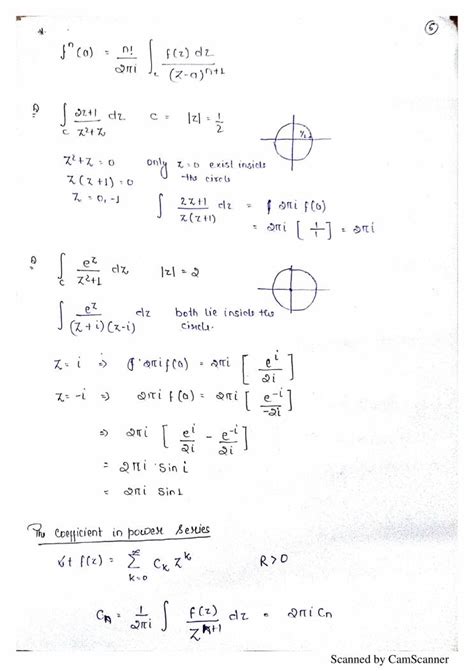 5
fⁿ(0) = n!/2πi ∫_c f(z) dz/(z-a)ⁿ⁺¹
Q) ∫_c 2z+1/z²+z dz C = |z| = 1/2
1/2
z²+z = 0 only z=0 exist inside
z(z+1) = 0 the circle
z = 0, -1 ∫ 2z+1/z(z+1) dz = 2πi f(0)
= 2πi [1/1] = 2πi
Q) ∫_c e^z/z²+1 dz |z| = 2
∫ e^z/(z+i)(z-i) dz both lie inside the
circle.
z = i ⇒ 2πi f(0) = 2πi [e^i/2i]
z = -i ⇒ 2πi f(0) = 2πi [e^-i/-2i]
⇒ 2πi [e^i/2i - e^-i/2i]
= 2πi sin i
= 2πi sin1
The Coefficient in power series
f(z) = ∑_{k=0}^∞ C_k z^k R>0
C_n = 1/2πi ∫ f(z)/z^{n+1} dz = 2πi Cn
Scanned by CamScanner